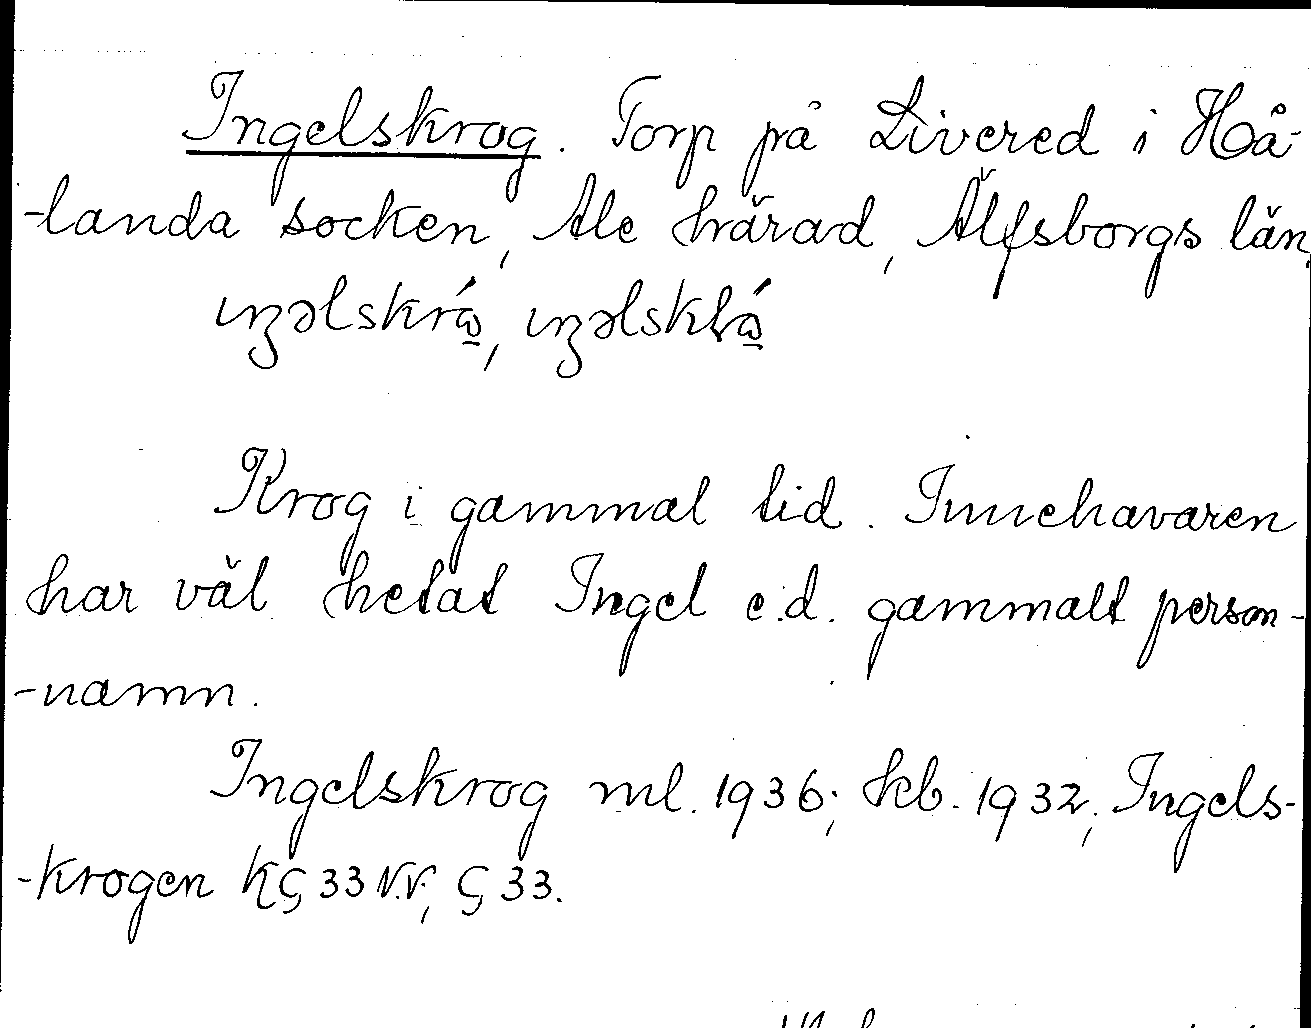 Ingelskrog. Torp på Livered i Hå-
-landa socken, Ale härad, Älfsborgs län.
Krog i gammal tid. Innehavaren
har väl hetat Ingel e.d. gammalt person-
-namn.
Ingelskrog ml. 1936; kb. 1932; Ingels-
-krogen KG 33 NV, G 33.